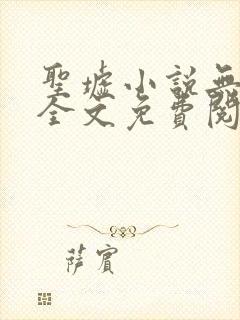 聖墟小說無
全文免費閱
薩賓